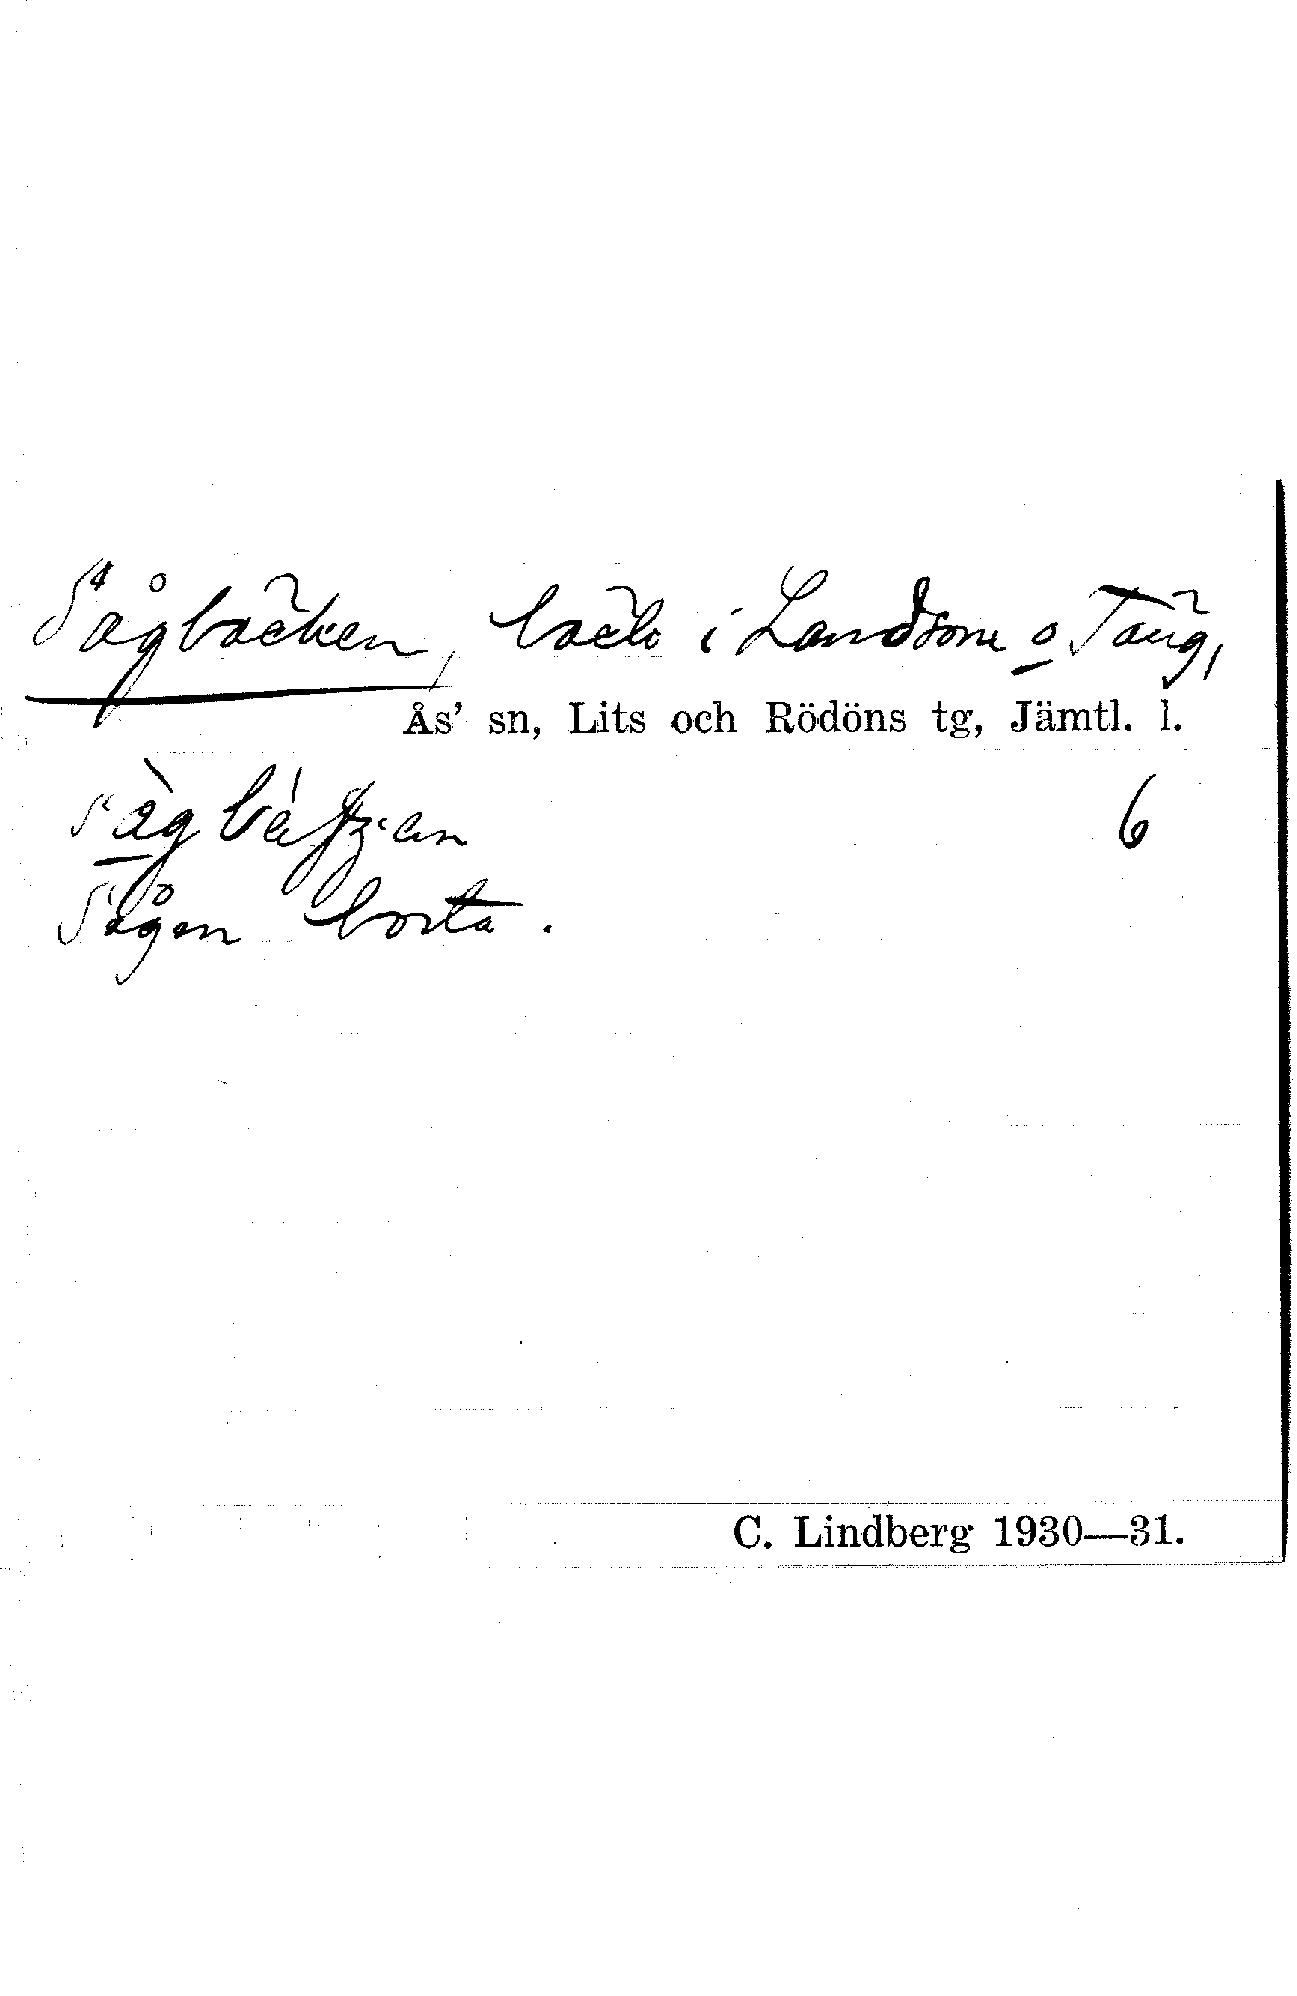 Sågbäcken, bäck i Landsom o Täng,
Ås' sn, Lits och Rödöns tg, Jämtl. l.
6
Sågen borta.
C. Lindberg 1930—31.